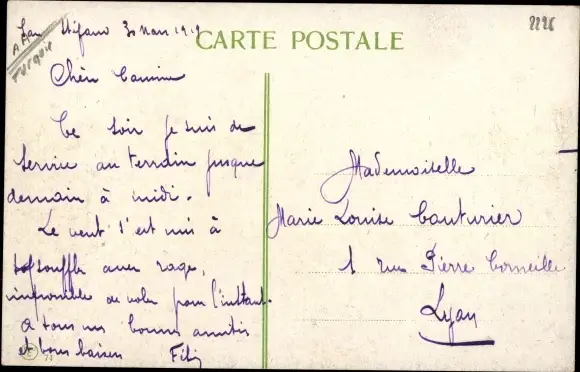 San Stefano 30 Mars 1919
2226
CARTE POSTALE
TURQUIE
Chère Cousine
Ce soir je suis de
service au terrain jusque
demain à midi.
Le vent s'est mis à
souffler avec rage,
impossible de voler pour l'instant.
A tous mes bonnes amitiés
et bons baisers
Mademoiselle
Marie Louise Couturier
1 rue Pierre Corneille
Lyon